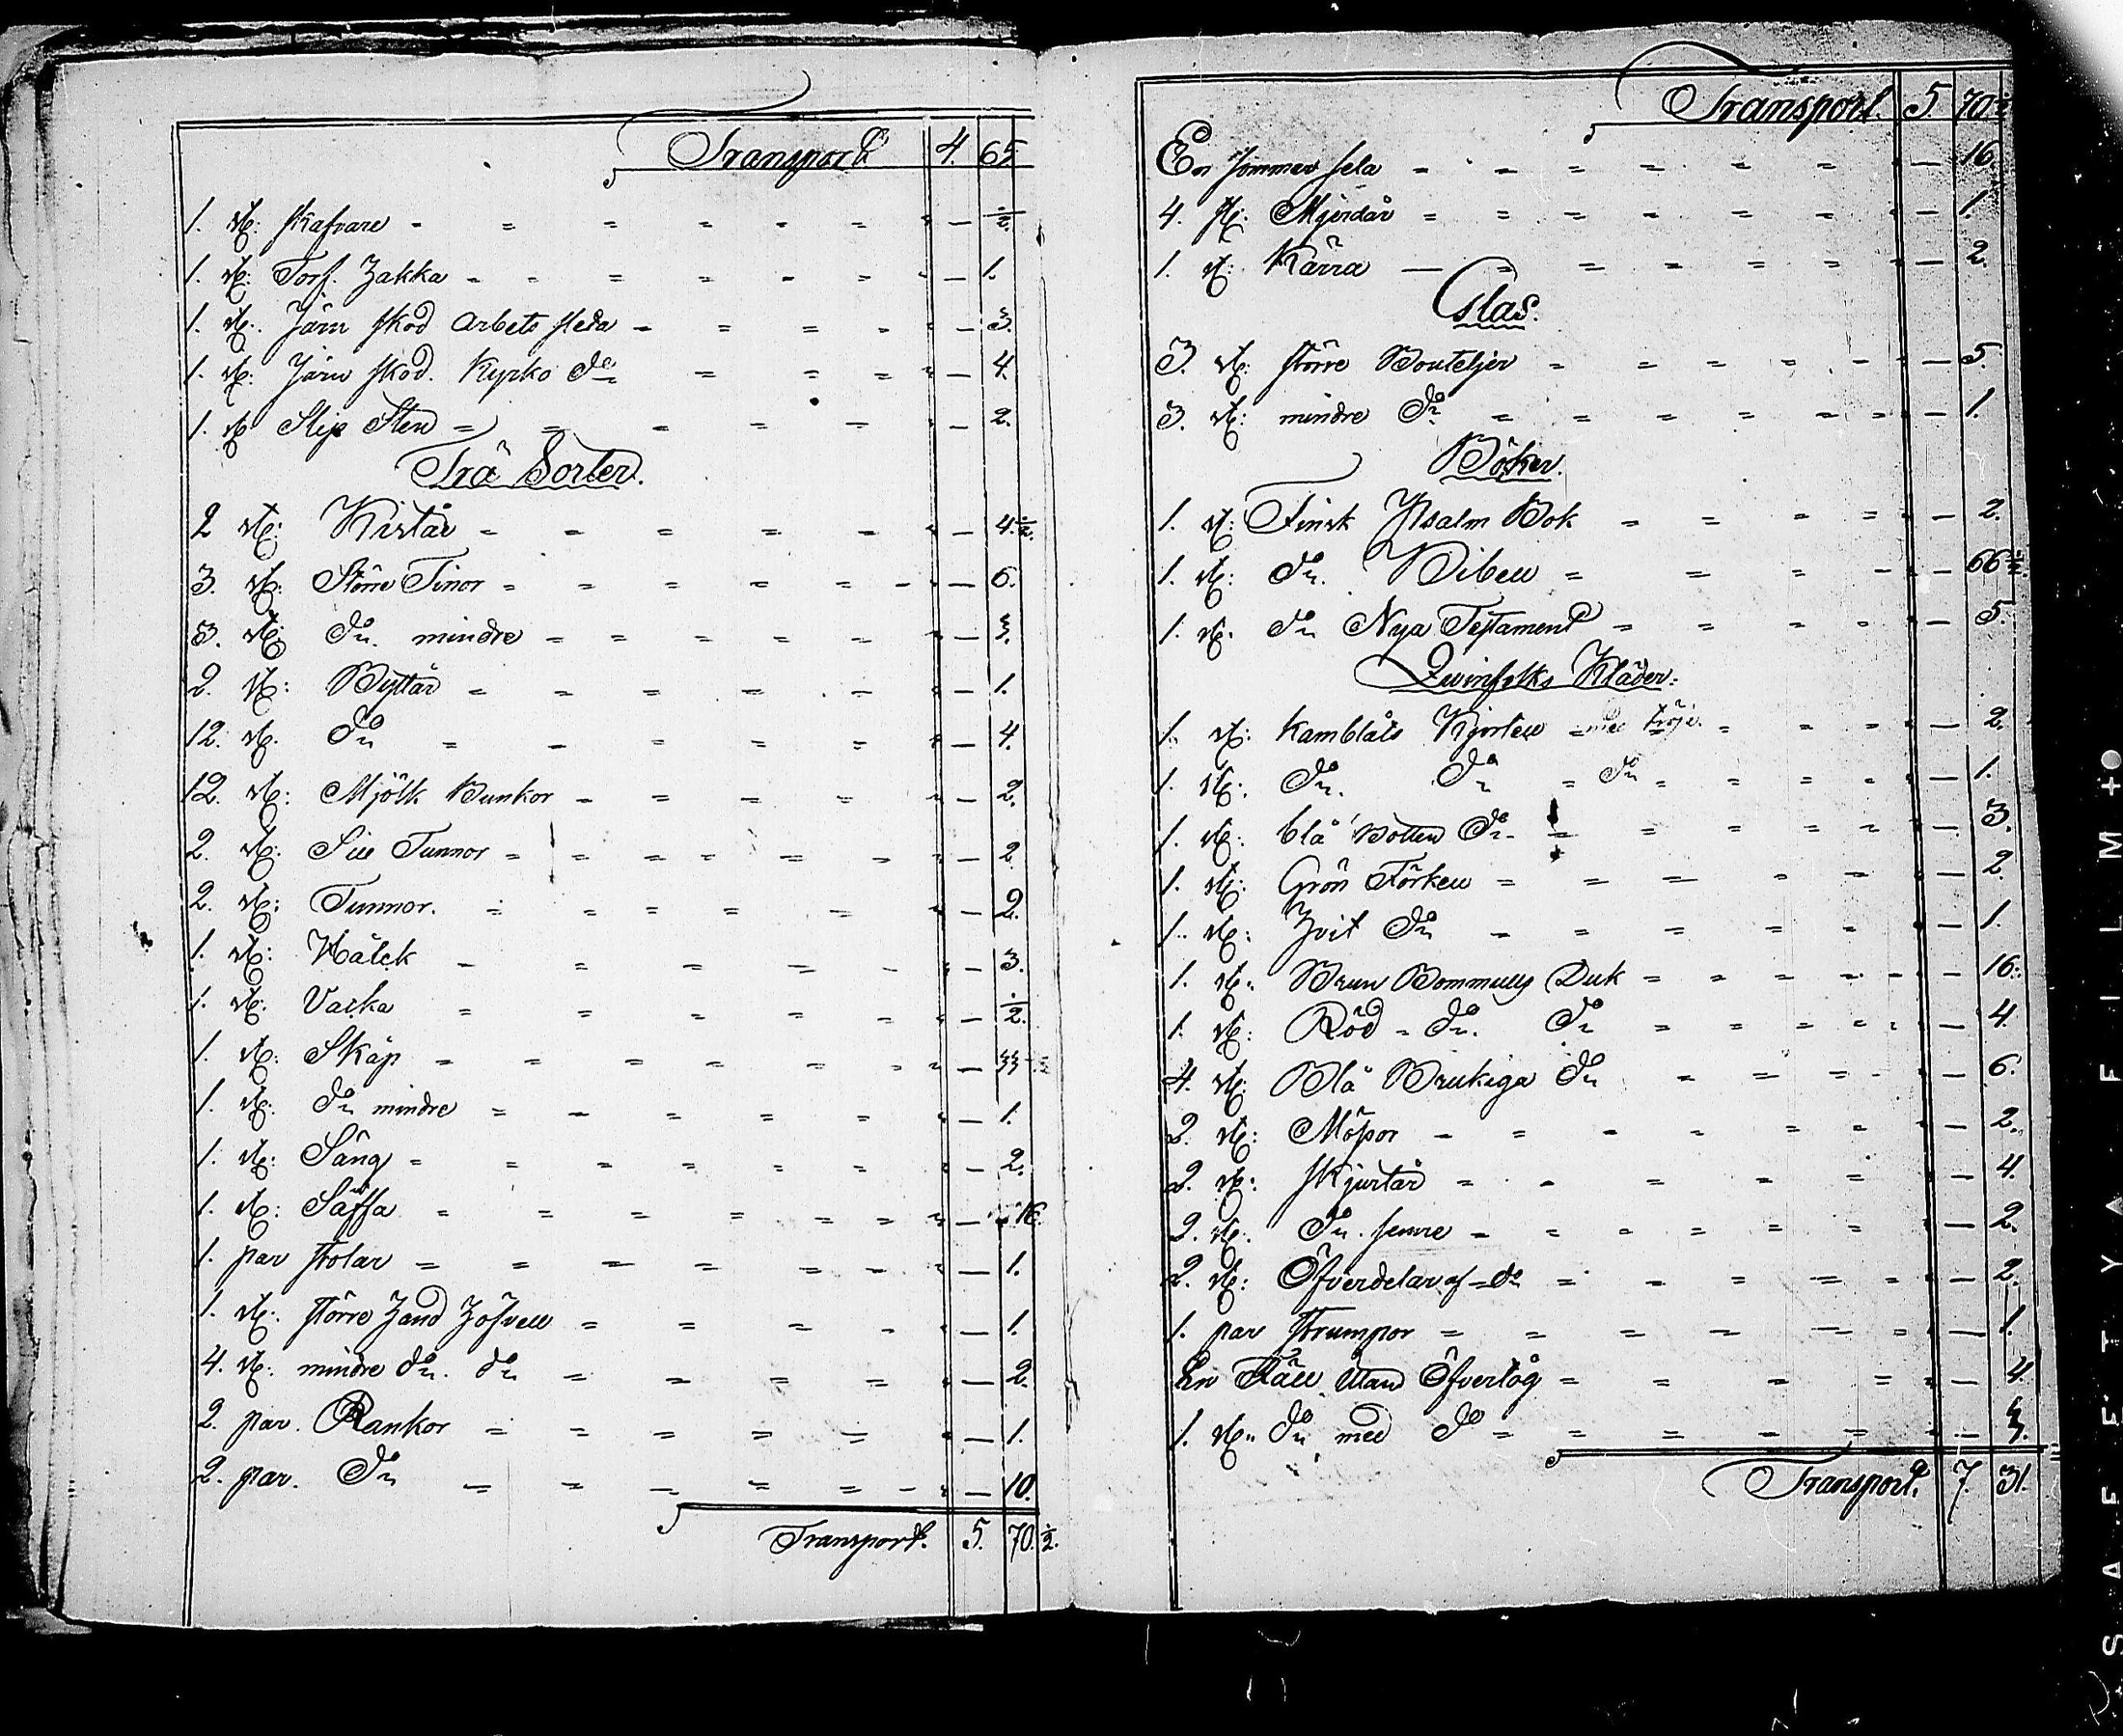 Transport 4. 65.
1. st: skafvare - - - - - - - — ½
1. st: Torf. Hakka - - - - - - - — 1.
1. st: Järn skod Arbets släda - - - - - — 3.
1. st: Järn skod. Kyrko do - - - - — 4.
1. st Slip Sten - - - - - - — 2.
Trä Sorter.
2 st: Kistår - - - - - - — 4½.
3. st: Större Tinor - - - - - - - — 6.
3. st: do. mindre - - - - - - — 3.
2. st: Byttår - - - - - - — 1.
12. st. do - - - - - - — 4.
12. st: Mjölk Bunkor - - - - - — 2.
2. st: Sill Tunnor - - - - - - - — 2
2. st: Tunnor. - - - - - - — 2.
1. st: Kälck - - - - - — 3.
1. st: Vacka - - - - - - — ½.
1. st: Skåp - - - - - - —
1. st: do mindre - - - - - - 1.
1. st: Säng - - - - - - - — 2.
1. st: - - - - - - - — 16.
1. par stolar - - - - - - - — 1.
1. st: större Hand - - - - — 1.
4. st: mindre do. do - - - - - — 2.
2. par. Rankor - - - - - - — 1.
2. par. do - - - - - - - — 10.
Transport. 5. 70.½.
Transport. 5. 70½
En sommar sela - - - - - - - — 16.
4. st: Mjerdår - - - - - - - — 1.
1. st: Kärra — - - - - - - — 2.
Glas.
3. st: större Bouteljer - - - - - — 5.
3. st: mindre do - - - - - - - — 1.
Böker.
1. st: Finsk Psalm Bok - - - - - — 2.
1. st: do. Bibell - - - - - — 66½.
1. st. do Nya Testament - - - - - — 5.
Qvinfolks Kläder.
1. st: Kamblåts Kjortell med tröje. - - - - — 2.
1. st: do. do - do - - - - - — 1.
1. st: blå Botten do - - - - - - — 3.
1. st: Grön Förkell - - - - - - — 2.
1. st: Hvit do - - - - - - — 1.
1. st: Brun Bommulls Duk - - - - - - — 16.
1. st: Röd - do. do - - - - - - — 4.
4. st: Blå Brukiga do - - - - - — 6.
2. st: Mössor - - - - - - - — 2.
2. st: skjurtår - - - - - - — 4.
2. st: do. sämre - - - - - - - — 2.
2. st: Öfverdelar af do - - - - - — 2.
1. par strumpor - - - - - - — 1.
En Fäll utan Öfvertåg - - - - - — 4.
1. st. do med do - - - - - - — 3.
Transport. 7. 31.
SAFETY FILM